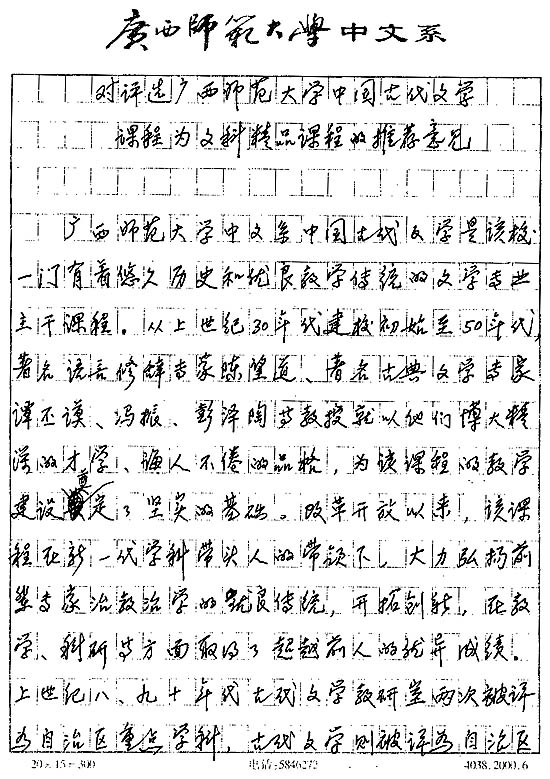 廣西師範大學中文系
对评选广西师范大学中国古代文学
课程为文科精品课程的推荐意见
广西师范大学中文系中国古代文学是该校
一门有着悠久历史和优良教学传统的文学专业
主干课程。从上世纪30年代建校初始至50年代,
著名语言修辞专家陈望道、著名古典文学专家
谭丕谟、冯振、彭泽陶等教授就以他们博大精
深的才学、诲人不倦的品格,为该课程的教学
建设奠定了坚实的基础。改革开放以来,该课
程在新一代学科带头人的带领下,大力弘扬前
辈专家治教治学的优良传统,开拓创新,在教
学、科研等方面取得了超越前人的优异成绩。
上世纪八、九十年代古代文学教研室两次被评
为自治区重点学科,古代文学则被评为自治区
20×15=300 电话:5846272 4038.2000.6